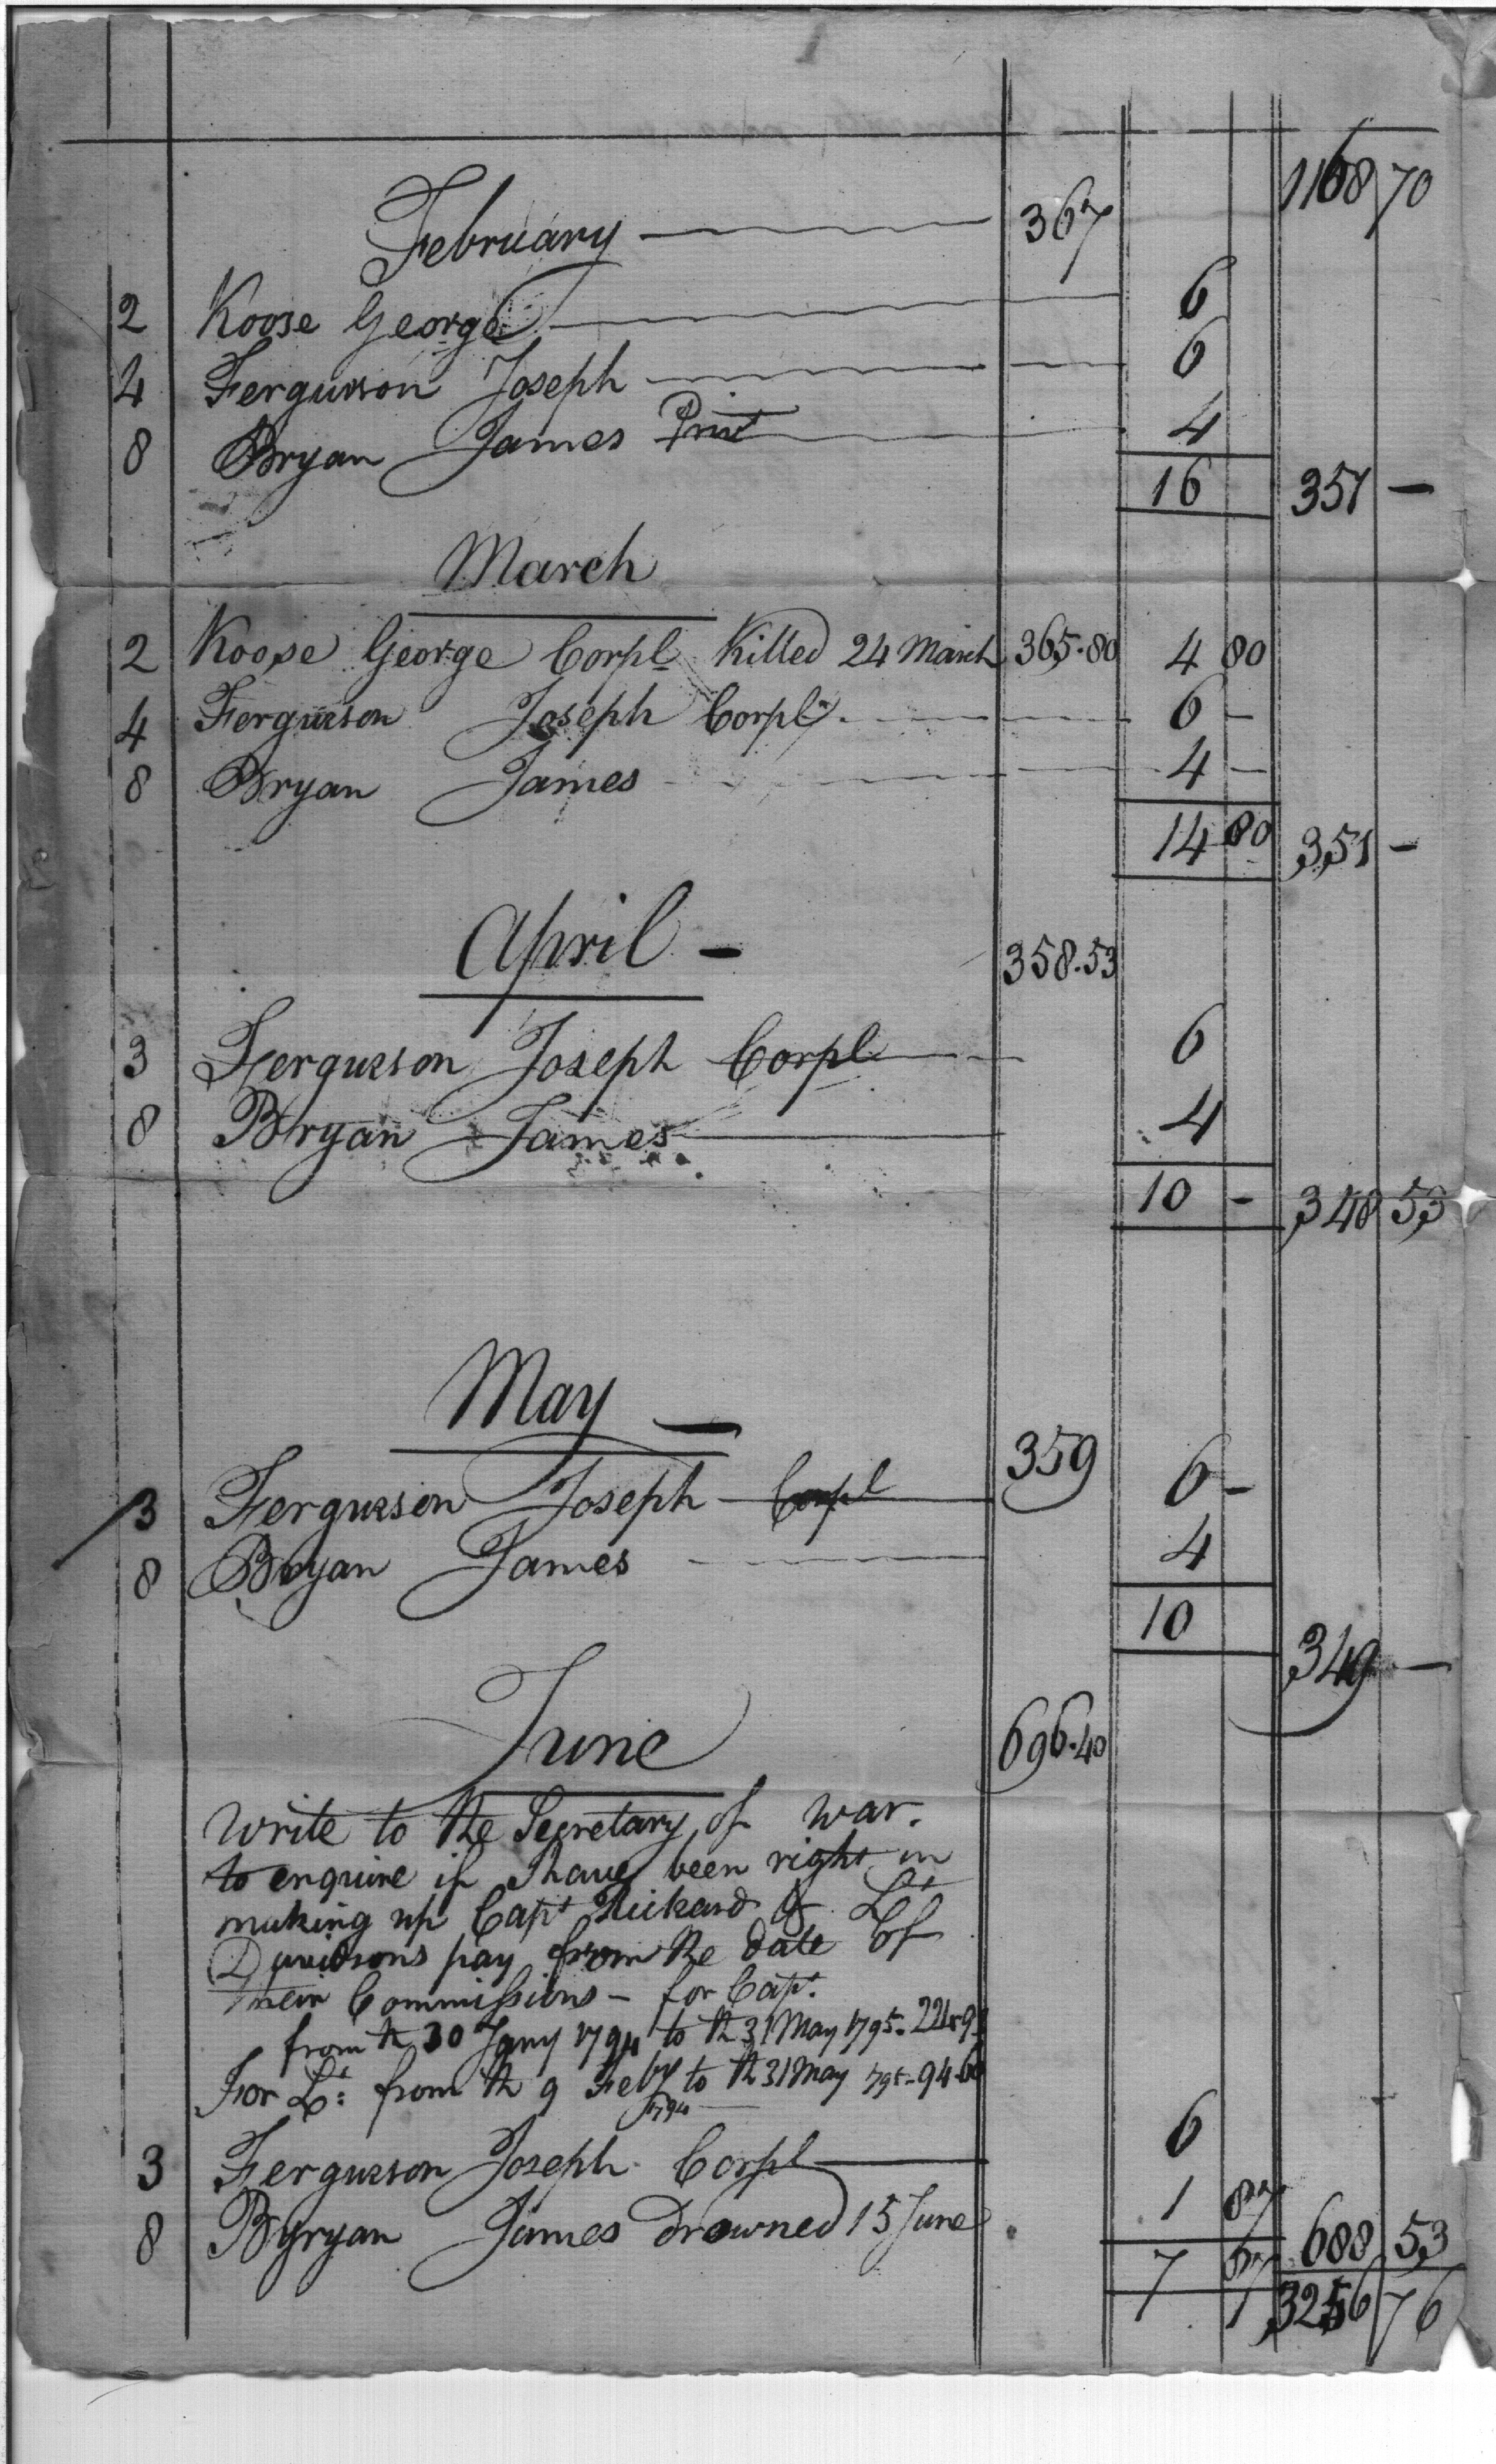 1168 70
February 367
2 Koose George 6
4 Fergusson Joseph 6
8 Bryan James Priv't 4
16 351 -
March
2 Koose George Corpl Killed 24 March 365.80 4 80
4 Fergusson Joseph Corpl. 6 -
8 Bryan James 4 -
14 80 351 -
April - 358.53
3 Fergusson Joseph Corpl 6
8 Bryan James 4
10 - 348 53
May - 359
3 Fergusson Joseph Corpl 6 -
8 Bryan James 4
10 349 -
June 696.40
Write to the Secretary of War.
to enquire if I have been right in
making up Capt Rickard & Lt
Davidsons pay from the date of
their Commissions - for Capt.
from th 30 Jany 1794 to th 31 May 1795.
For Lt: from th 9 Feby 1794 to th 31 May 795 - 94.60
3 Fergusson Joseph Corpl 6
8 Byryan James Drowned 15 June 1 87
7 87 688 53
3256 76